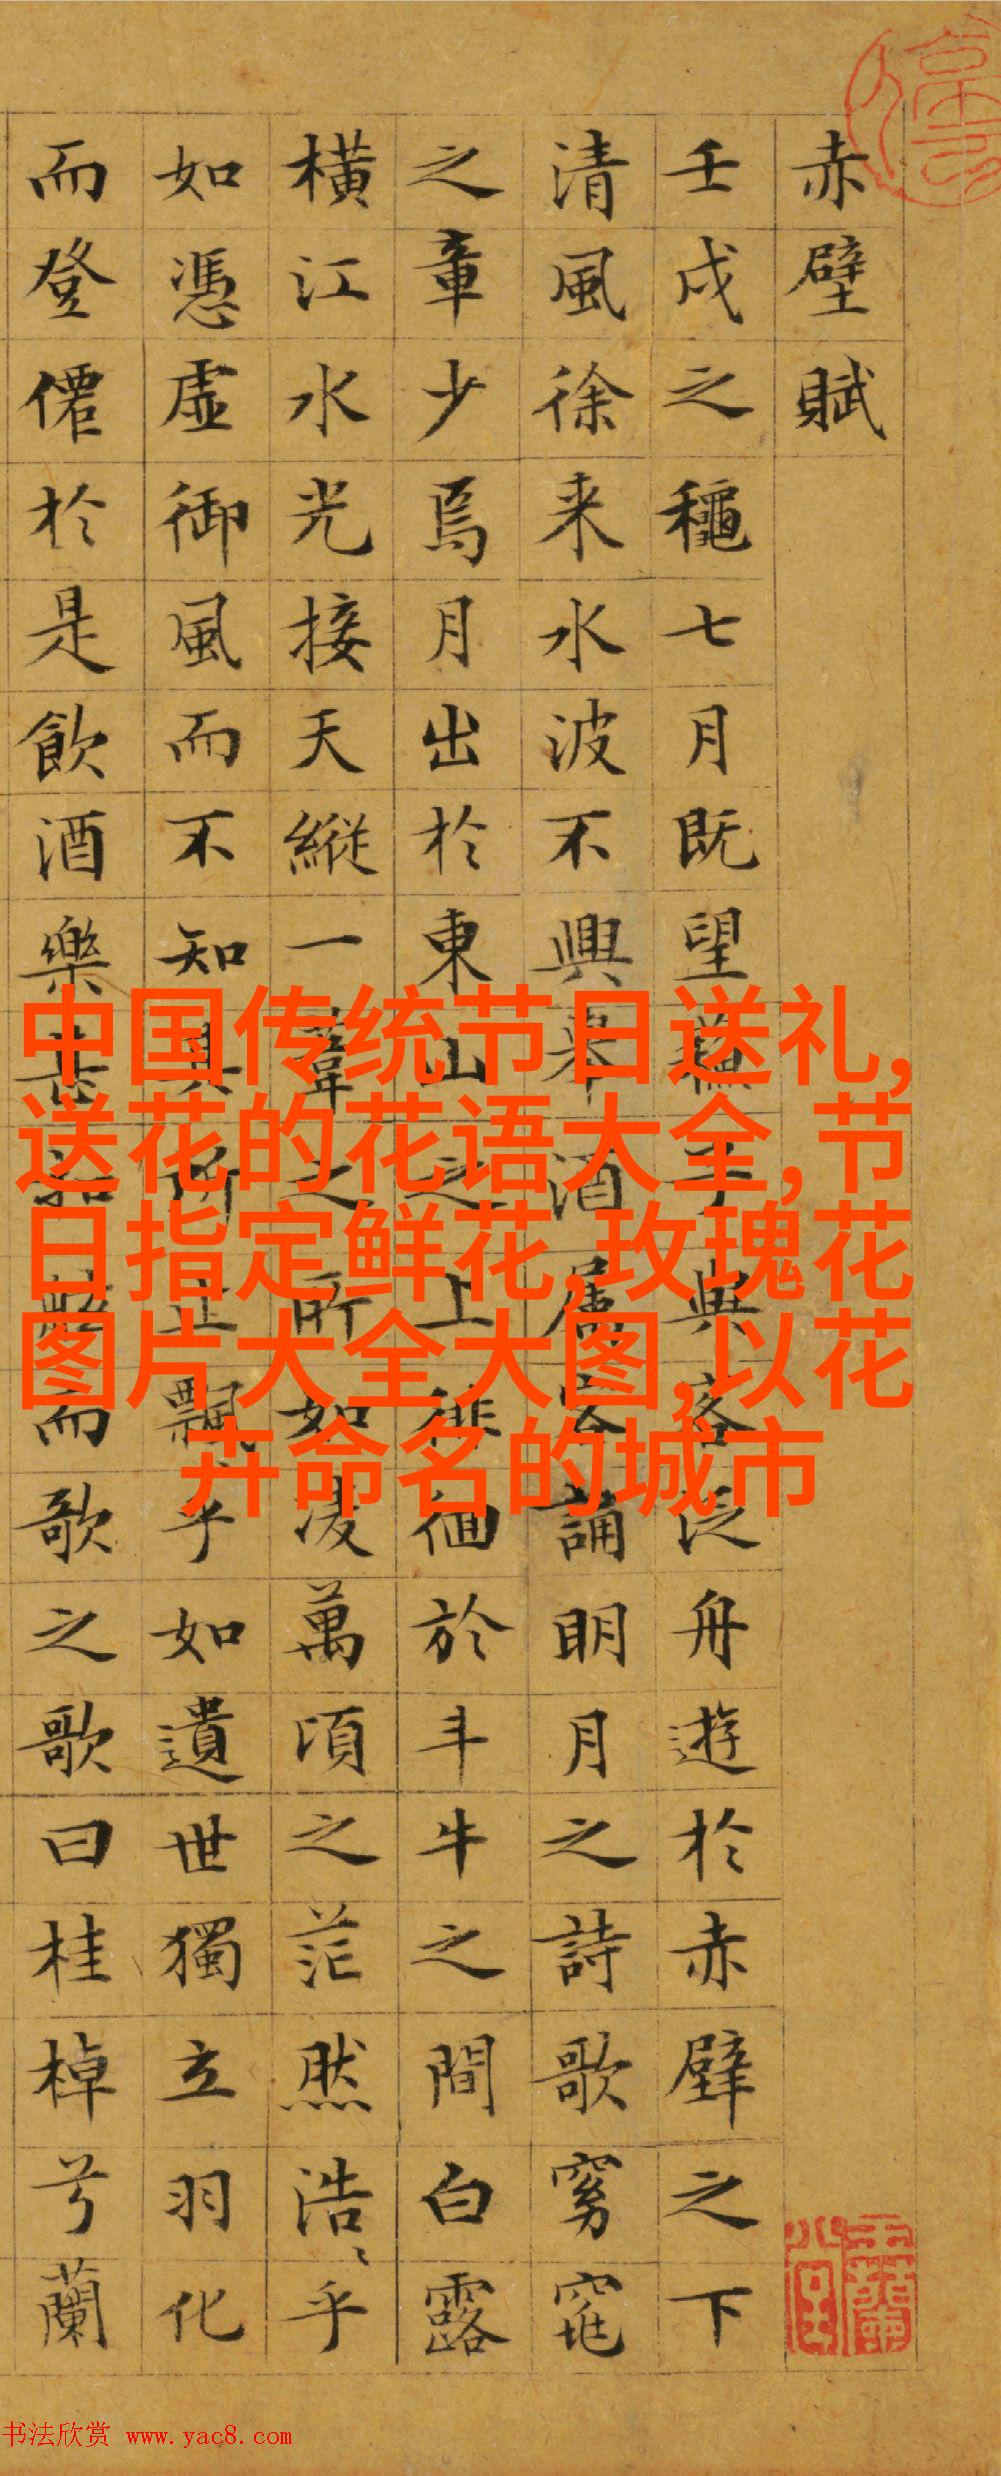 赤壁賦
壬戌之穐七月既望蘇子與客泛舟遊於赤壁之下
清風徐来水波不興舉酒属客誦明月之詩歌窈窕
之章少焉月出於東山之上徘徊於斗牛之間白露
橫江水光接天縱一葦之所如凌萬頃之茫然浩〻乎
如憑虛御風而不知其所止飄乎如遺世獨立羽化
而登僊於是飲酒樂甚扣舷而歌之歌曰桂棹兮蘭
中国传统节日送礼,
送花的花语大全,节
日指定鲜花,玫瑰花
图片大全大图,以花
卉命名的城市
书法欣赏 www.yac8.com